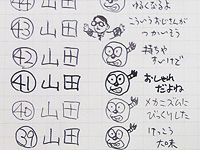 ゆるくなるよ
㊸ 山田
こういうおじさんが
つかいそう
㊷ 山田
持ちや
すいけど
㊶ 山田
おしゃれ
だよね
㊵ 山田
メカニズムに
びっくりした
㊴ 山田
けっこう
大味